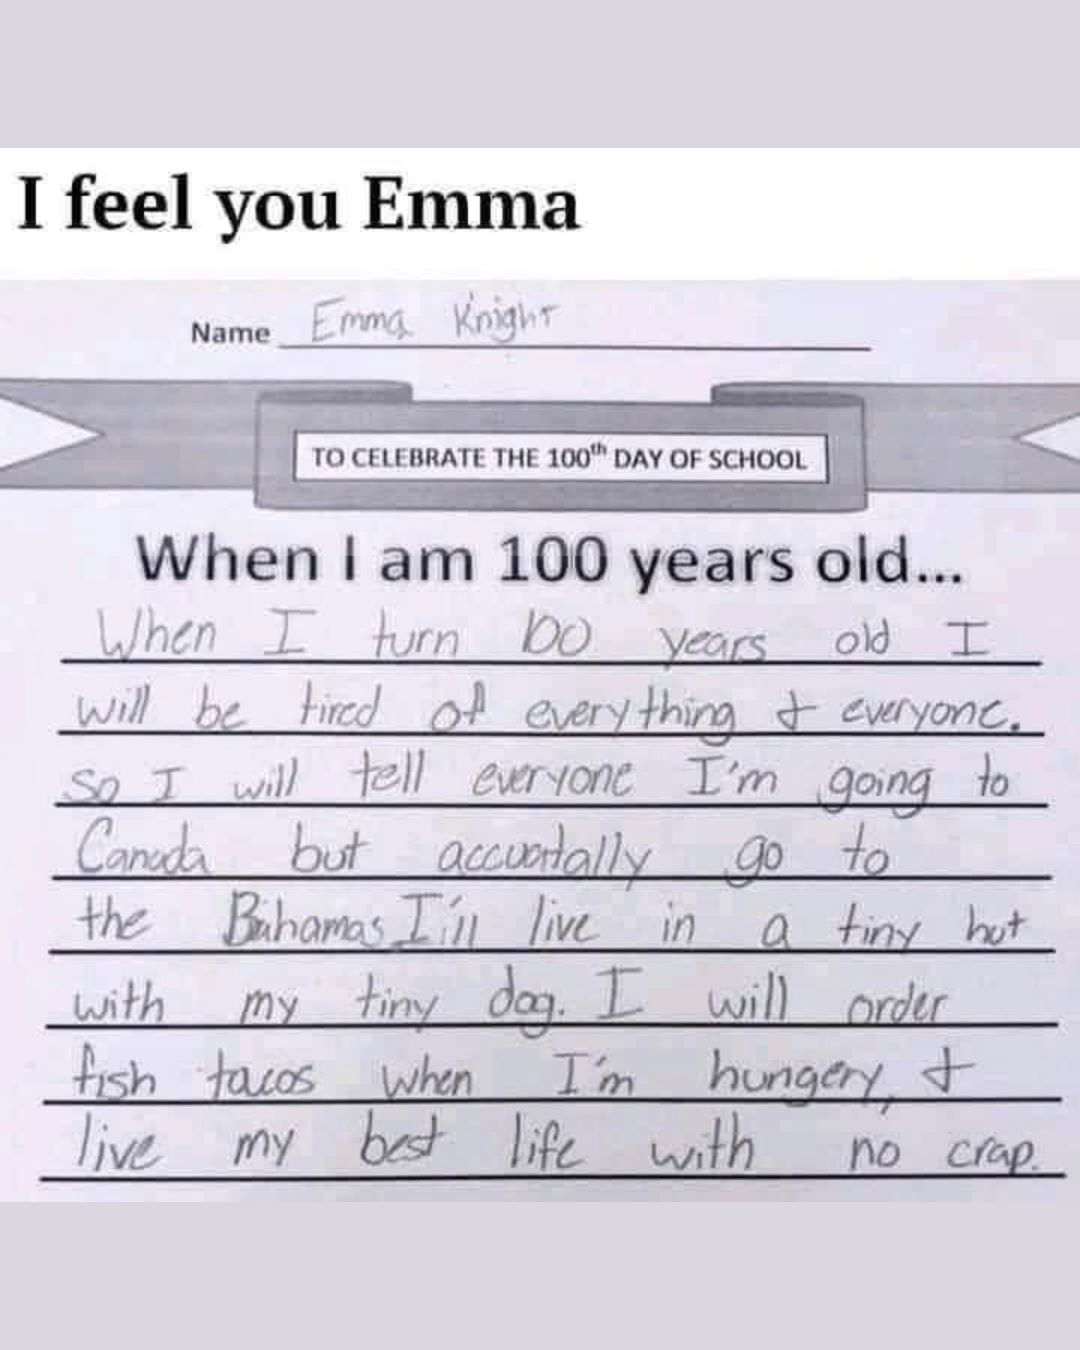 I feel you Emma
Name Emma Knight
TO CELEBRATE THE 100th DAY OF SCHOOL
When I am 100 years old...
When I turn 100 years old I
will be tired of everything & everyone.
so I will tell everyone I'm going to
Canada but accuatally go to
the Bahamas I'll live in a tiny hut
with my tiny dog. I will order
fish tacos when I'm hungery, &
live my best life with no crap.